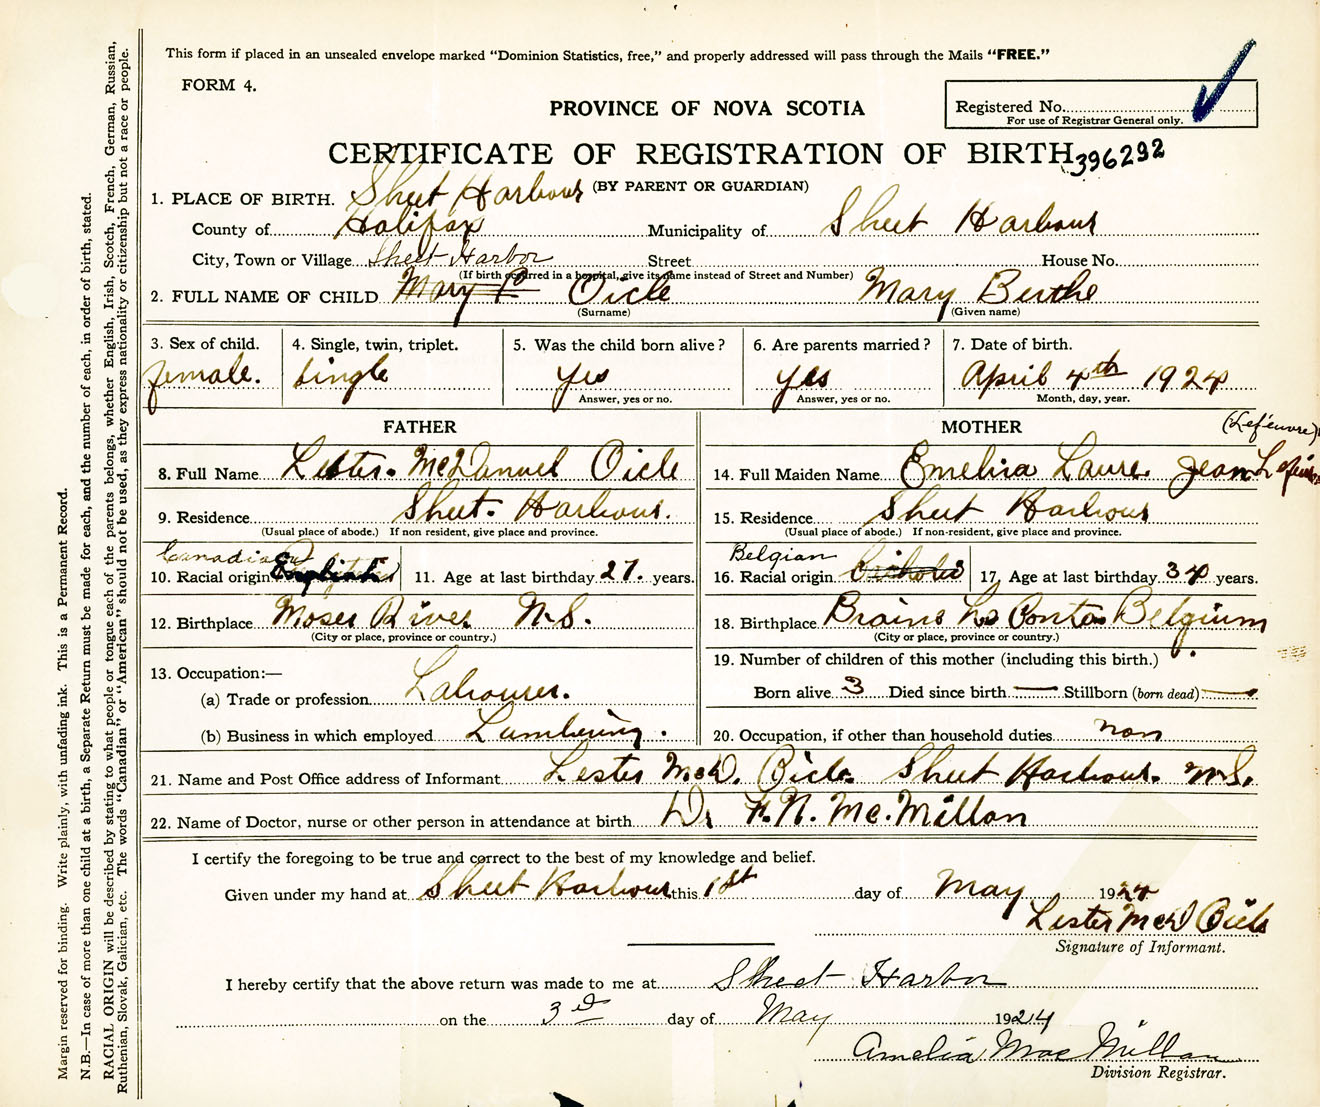 This form if placed in an unsealed envelope marked “Dominion Statistics, free,” and properly addressed will pass through the Mails “FREE.”
FORM 4.
PROVINCE OF NOVA SCOTIA
Registered No.
For use of Registrar General only.
CERTIFICATE OF REGISTRATION OF BIRTH 396292
(BY PARENT OR GUARDIAN)
1. PLACE OF BIRTH. Sheet Harbour
County of Halifax Municipality of Sheet Harbour
City, Town or Village Sheet Harbor Street House No.
(If birth occurred in a hospital, give its name instead of Street and Number)
2. FULL NAME OF CHILD Mary Oicle Mary Berthe
(Surname) (Given name)
3. Sex of child. 4. Single, twin, triplet. 5. Was the child born alive? 6. Are parents married? 7. Date of birth.
female. single yes yes April 4th 1924
Answer, yes or no. Answer, yes or no. Month, day, year.
FATHER
8. Full Name Lester McDanuel Oicle
9. Residence Sheet Harbour.
(Usual place of abode.) If non resident, give place and province.
Canadian
10. Racial origin English 11. Age at last birthday 27. years.
12. Birthplace Moser River N.S.
(City or place, province or country.)
13. Occupation:—
(a) Trade or profession Labourer.
(b) Business in which employed Lumbering.
MOTHER
(Lefeuvre)
14. Full Maiden Name Emelina Laure Jean
15. Residence Sheet Harbour
(Usual place of abode.) If non-resident, give place and province.
Belgian
16. Racial origin 17. Age at last birthday 34 years.
18. Birthplace Braine Belgium
(City or place, province or country.)
19. Number of children of this mother (including this birth.)
Born alive 3 Died since birth — Stillborn (born dead) —
20. Occupation, if other than household duties non
21. Name and Post Office address of Informant Lester McD. Oicle Sheet Harbour. N.S.
22. Name of Doctor, nurse or other person in attendance at birth Dr F.N. McMillan
I certify the foregoing to be true and correct to the best of my knowledge and belief.
Given under my hand at Sheet Harbour this 1st day of May 1924
Lester McD Oicle
Signature of Informant.
I hereby certify that the above return was made to me at Sheet Harbor
on the 3d day of May 1924
Amelia MacMillan
Division Registrar.
Margin reserved for binding. Write plainly, with unfading ink. This is a Permanent Record.
N.B.—In case of more than one child at a birth, a Separate Return must be made for each, and the number of each, in order of birth, stated.
RACIAL ORIGIN will be described by stating to what people or tongue each of the parents belongs, whether English, Irish, Scotch, French, German, Russian,
Ruthenian, Slovak, Galician, etc. The words “Canadian” or “American” should not be used, as they express nationality or citizenship but not a race or people.